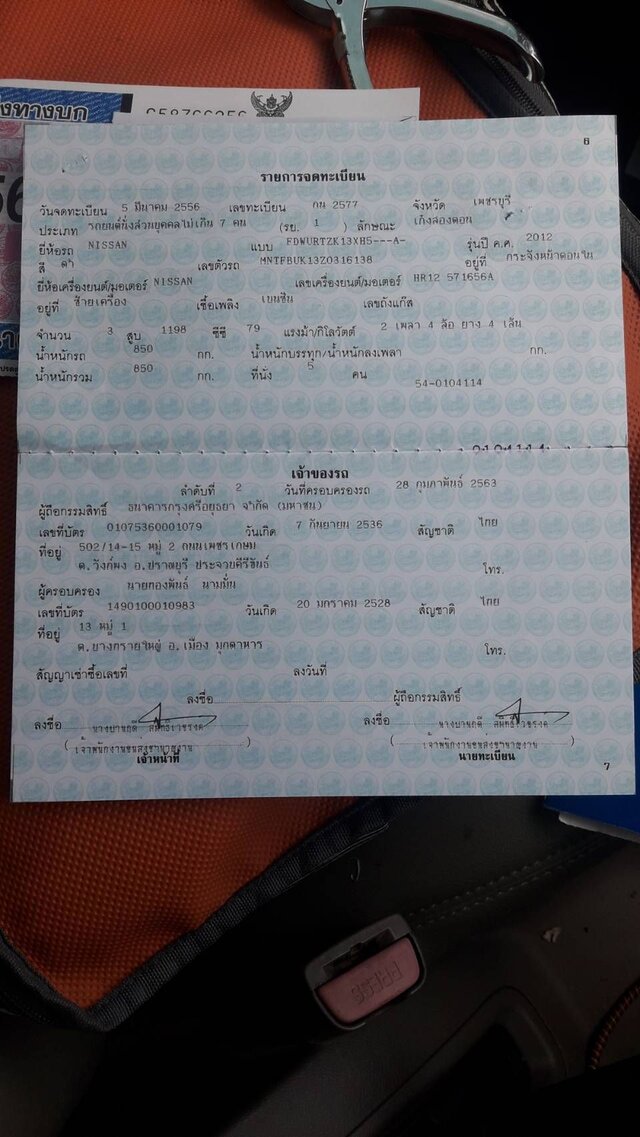 งทางบก
658766256
6
รายการจดทะเบียน
วันจดทะเบียน 5 มีนาคม 2556 เลขทะเบียน กน 2577 จังหวัด เพชรบุรี
ประเภท รถยนต์นั่งส่วนบุคคลไม่เกิน 7 คน (รย. 1 ) ลักษณะ เก๋งสองตอน
ยี่ห้อรถ NISSAN แบบ FDWURTZK13XH5---A- รุ่นปี ค.ศ. 2012
สี ดำ เลขตัวรถ MNTFBUK13Z0316138 อยู่ที่ กระจังหน้าตอนใน
ยี่ห้อเครื่องยนต์/มอเตอร์ NISSAN เลขเครื่องยนต์/มอเตอร์ HR12 571656A
อยู่ที่ ซ้ายเครื่อง เชื้อเพลิง เบนซิน เลขถังแก๊ส
จำนวน 3 สูบ 1198 ซีซี 79 แรงม้า/กิโลวัตต์ 2 เพลา 4 ล้อ ยาง 4 เส้น
น้ำหนักรถ 850 กก. น้ำหนักบรรทุก/น้ำหนักลงเพลา กก.
น้ำหนักรวม 850 กก. ที่นั่ง 5 คน
54-0104114
เจ้าของรถ
ลำดับที่ 2 วันที่ครอบครองรถ 28 กุมภาพันธ์ 2563
ผู้ถือกรรมสิทธิ์ ธนาคารกรุงศรีอยุธยา จำกัด (มหาชน)
เลขที่บัตร 01075360001079 วันเกิด 7 กันยายน 2536 สัญชาติ ไทย
ที่อยู่ 502/14-15 หมู่ 2 ถนนเพชรเกษม
ต.วังก์พง อ.ปราณบุรี ประจวบคีรีขันธ์ โทร.
ผู้ครอบครอง นายทองพันธ์ นามมั่น
เลขที่บัตร 1490100010983 วันเกิด 20 มกราคม 2528 สัญชาติ ไทย
ที่อยู่ 13 หมู่ 1
ต.บางทรายใหญ่ อ.เมือง มุกดาหาร โทร.
สัญญาเช่าซื้อเลขที่ ลงวันที่
ลงชื่อ ผู้ถือกรรมสิทธิ์
ลงชื่อ ลงชื่อ
(เจ้าพนักงานขนส่งชำนาญงาน) (เจ้าพนักงานขนส่งชำนาญงาน)
เจ้าหน้าที่ นายทะเบียน
7
PRESS